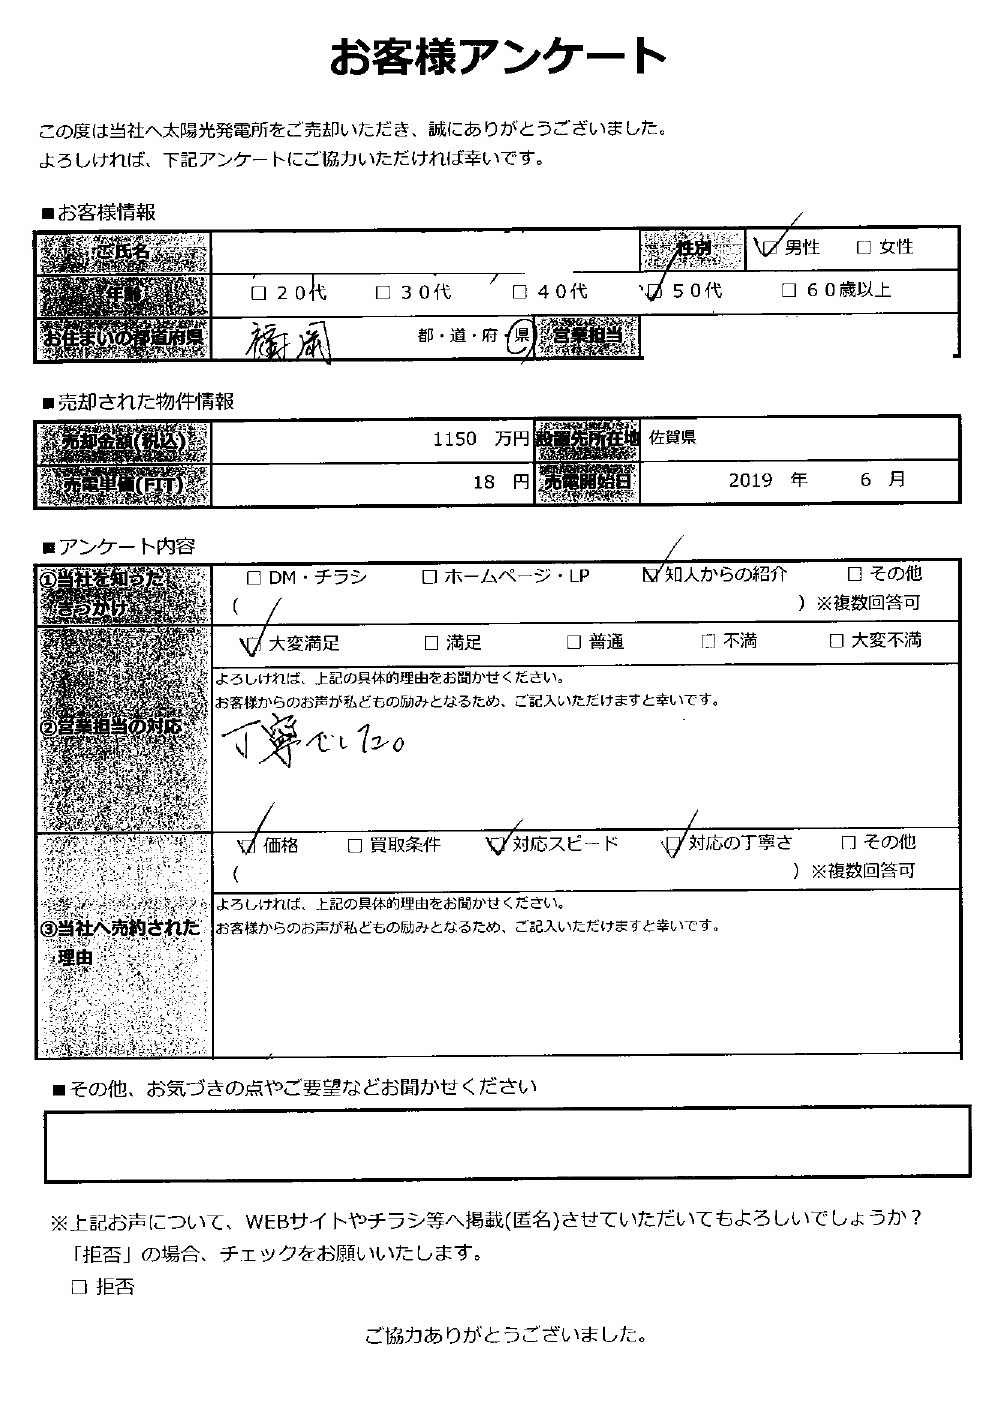 お客様アンケート
この度は当社へ太陽光発電所をご売却いただき、誠にありがとうございました。
よろしければ、下記アンケートにご協力いただければ幸いです。
■お客様情報
ご氏名 性別 ☑ 男性 □ 女性
年齢 □ 20代 □ 30代 □ 40代 ☑ 50代 □ 60歳以上
お住まいの都道府県 福岡 都・道・府・県 営業担当
■売却された物件情報
売却金額(税込) 1150 万円 設置先所在地 佐賀県
売電単価(FIT) 18 円 売電開始日 2019 年 6 月
■アンケート内容
①当社を知った □ DM・チラシ □ ホームページ・LP ☑ 知人からの紹介 □ その他
きっかけ ( ) ※複数回答可
☑ 大変満足 □ 満足 □ 普通 □ 不満 □ 大変不満
よろしければ、上記の具体的理由をお聞かせください。
お客様からのお声が私どもの励みとなるため、ご記入いただけますと幸いです。
②営業担当の対応
丁寧でした。
☑ 価格 □ 買取条件 ☑ 対応スピード ☑ 対応の丁寧さ □ その他
( ) ※複数回答可
よろしければ、上記の具体的理由をお聞かせください。
③当社へ売約された お客様からのお声が私どもの励みとなるため、ご記入いただけますと幸いです。
理由
■その他、お気づきの点やご要望などお聞かせください
※上記お声について、WEBサイトやチラシ等へ掲載(匿名)させていただいてもよろしいでしょうか？
「拒否」の場合、チェックをお願いいたします。
□ 拒否
ご協力ありがとうございました。